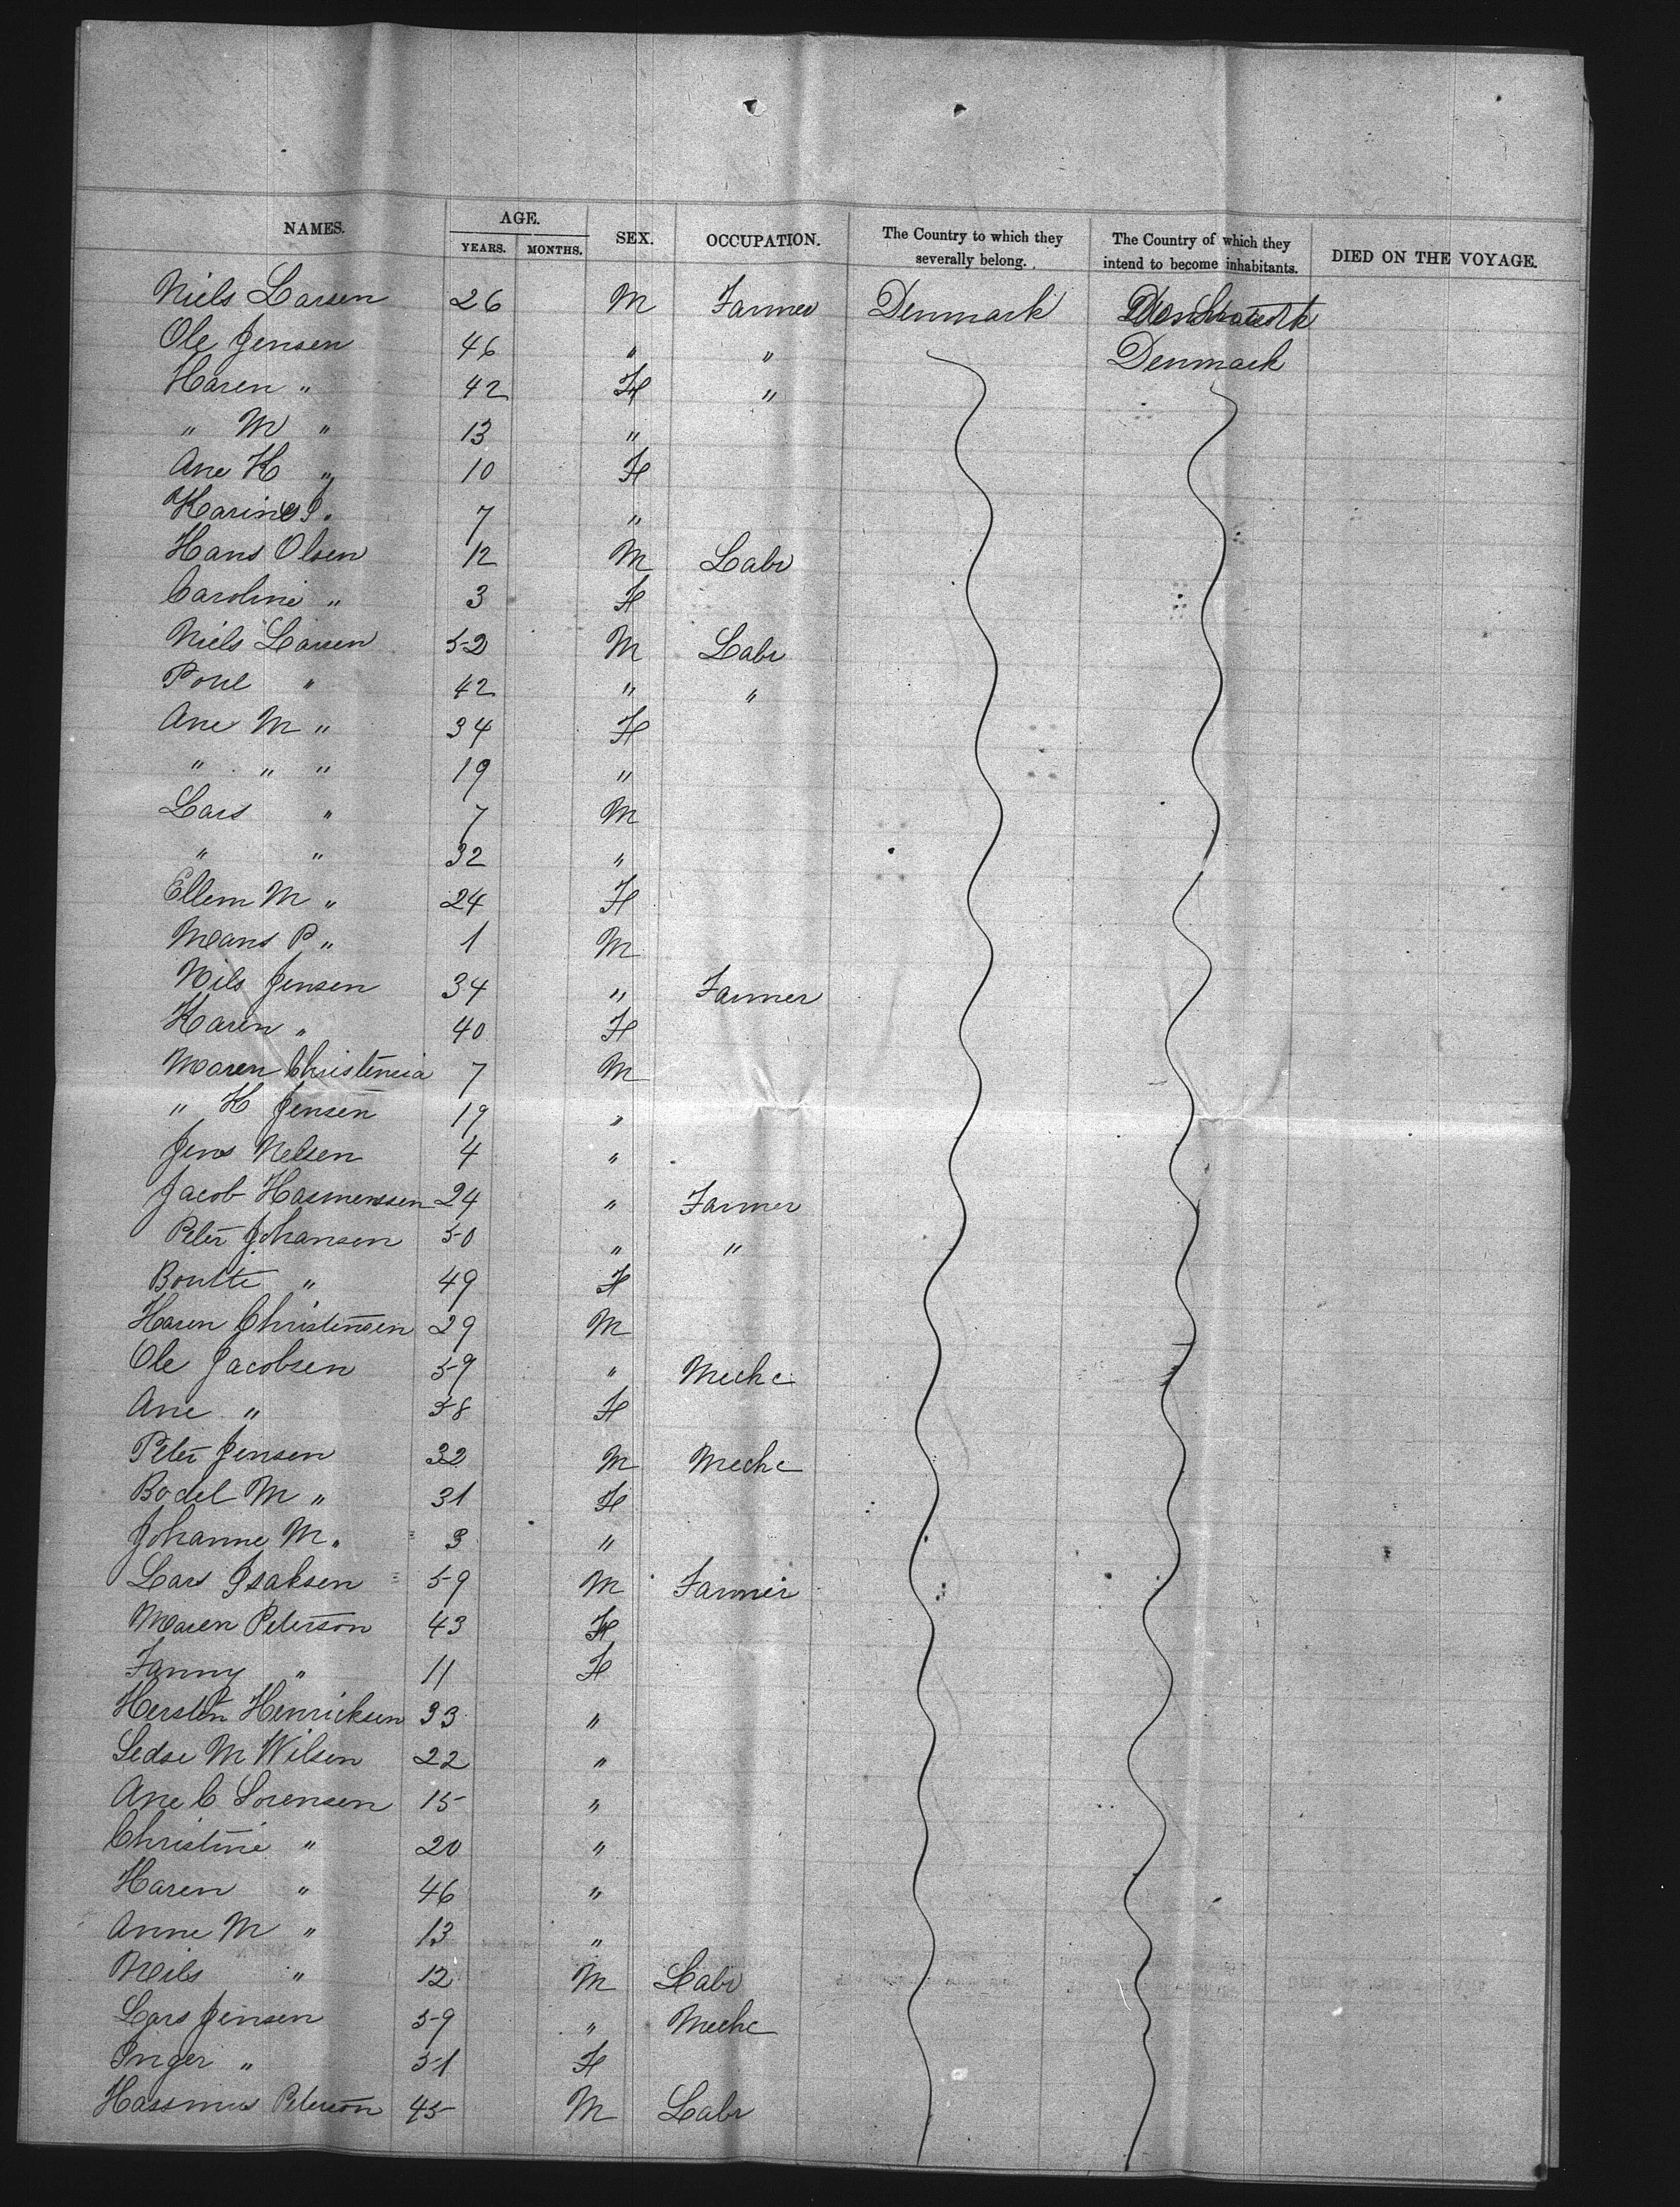 NAMES. AGE. YEARS. MONTHS. SEX. OCCUPATION. The Country to which they severally belong. The Country of which they intend to become inhabitants. DIED ON THE VOYAGE.
Niels Larsen 26 M Farmer Denmark
Ole Jensen 46 " " Denmark
Karen " 42 F "
" M " 13 "
Ane K " 10 F
Karine J. 7 "
Hans Olsen 12 M Labr
Caroline " 3 F
Niels Larsen 52 M Labr
Poul " 42 " "
Ane M " 34 F
" " " 19 "
Lars " 7 M
" " 32 "
Ellem M " 24 F
Mans P " 1 M
Nils Jensen 34 " Farmer
Karen " 40 F
Maren Christencia 7 M
" K Jensen 19 "
Jens Nelsen 4 "
Jacob Hasmenssen 24 " Farmer
Peter Johansen 50 " "
Boutte " 49 F
Karen Christensen 29 M
Ole Jacobsen 59 " Mechc
Ane " 58 F
Peter Jensen 32 M Mechc
Bodel M " 31 F
Johanne M " 3 "
Lars Isaksen 59 M Farmer
Maren Peterson 43 F
Fanny " 11 F
Kersten Henricksen 33 "
Sedse M Wilsen 22 "
Ane C Sorensen 15 "
Christine " 20 "
Karen " 46 "
Anne M " 13 "
Neils " 12 M Labr
Lars Jensen 59 " Mechc
Inger " 51 F
Hassmus Peterson 45 M Labr